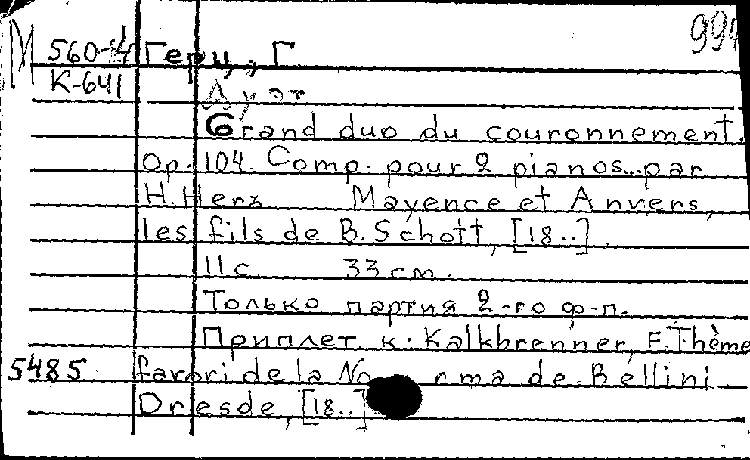 М 560-4 Герц, Г. 991
К-641
Дуэт
Grand duo du couronnement.
Op. 104. Comp. pour 2 pianos...par
H. Herz Mayence et Anvers,
les fils de B. Schott, [18..].
11 с. 33 см.
Только партия 2-го ф-п.
Приплет. к: Kalkbrenner, F. Thème
5485 favori de la Norma de Bellini
Dresde, [18..]